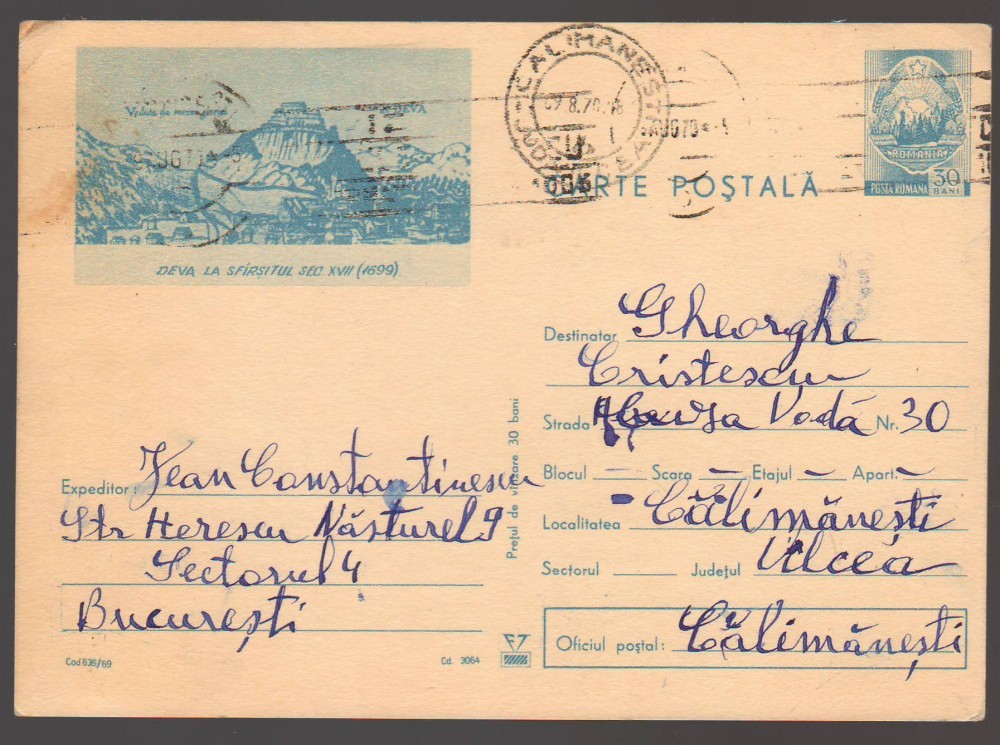 DEVA
DEVA LA SFÎRȘITUL SEC XVII (1699)
CALIMANESTI
JUD.
AUG 70
CARTE POȘTALĂ
ROMANIA
POSTA ROMANA 30 BANI
Destinatar Gheorghe
Cristescu
Strada Vodă Nr. 30
Blocul — Scara — Etajul — Apart. —
Localitatea Călimănești
Sectorul Județul Vîlcea
Oficiul poștal: Călimănești
Expeditor: Jean Constantinescu
Str Herescu Năsturel 9
Sectorul 4
București
Prețul de vînzare 30 bani
Cod 636/69
Cd. 3064